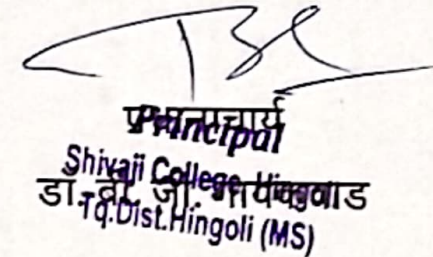 प्राचार्य
Principal
Shivaji College, Hingoli
डॉ. बी. जी. गायकवाड
Tq.Dist.Hingoli (MS)